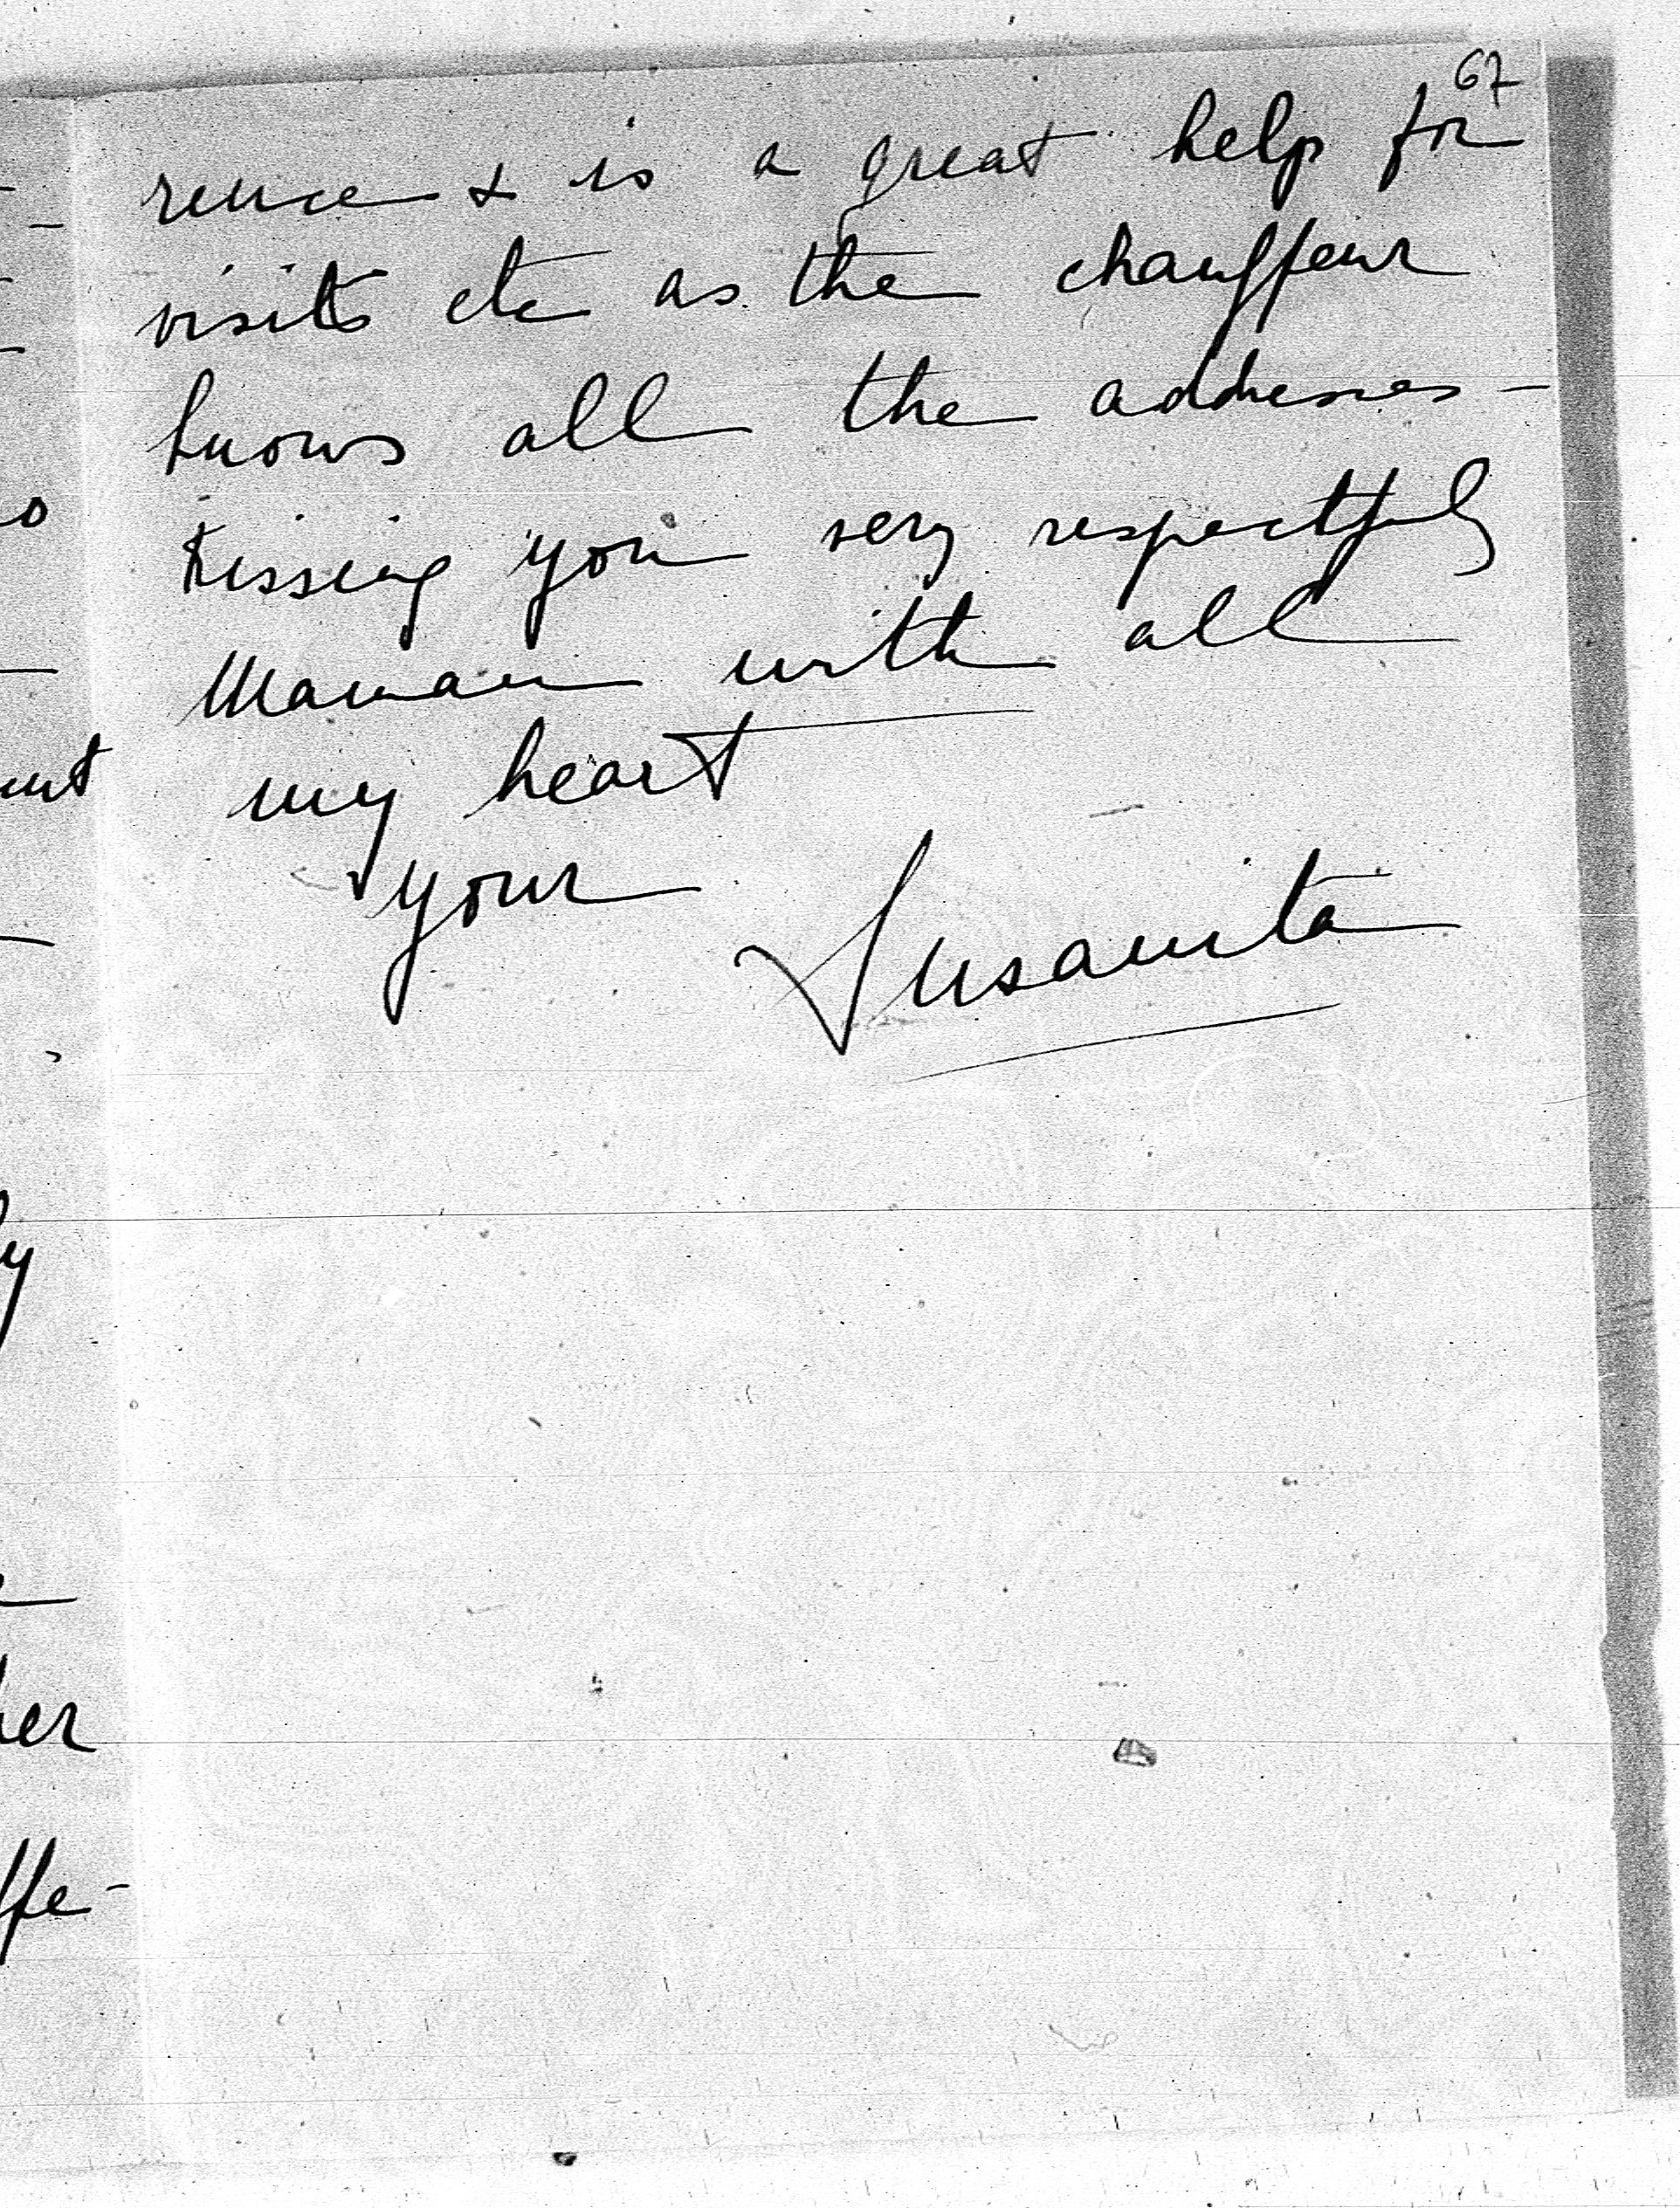 67
rence & is a great help for
visits etc as the chauffeur
knows all the addresses -
Kissing you very respectfuly
Maman with all
my heart
your
Susanita